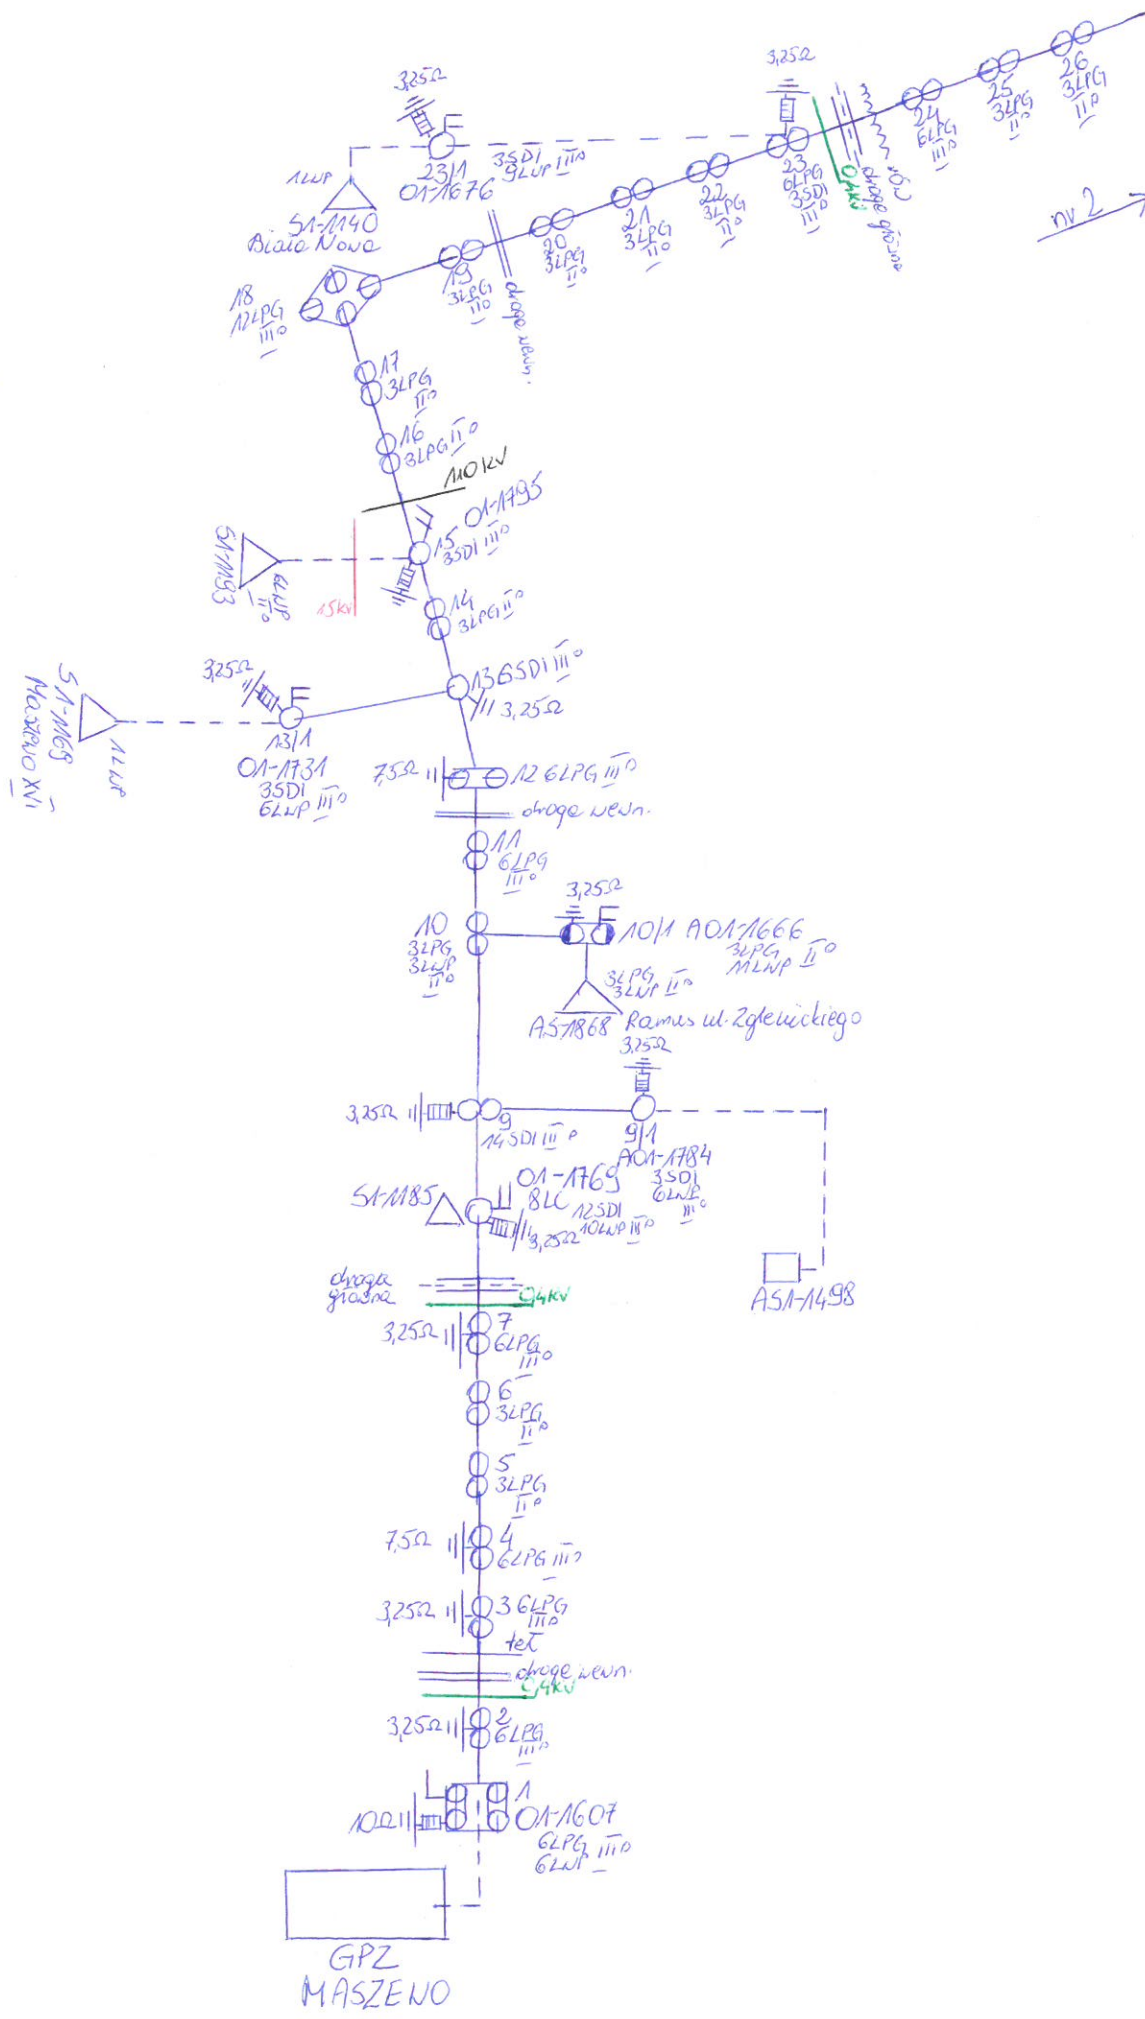 26
3LPG
II°
25
3LPG
II°
24
6LPG
III°
3,25Ω
23
6LPG
3SDI
III°
0,4kV
droga główna
rów
nr 2
3,25Ω
23/1
O1-1676
3SDI
9LWP III°
1LWP
S1-1140
Biała Nowa
22
3LPG
II°
21
3LPG
II°
20
3LPG
II°
19
3LPG
III°
droga wewn.
18
12LPG
III°
17
3LPG
II°
16
3LPG II°
110 kV
O1-1795
15
3SDI III°
S1-1193
6LWP
II°
15kV
14
3LPG II°
13 6SDI III°
3,25Ω
3,25Ω
13/1
O1-1731
3SDI
6LWP III°
S1-1169
Maszewo XVI
1LWP
7,5Ω
12 6LPG III°
droga wewn.
11
6LPG
III°
10
3LPG
3LWP
II°
3,25Ω
10/1 AO1-1666
3LPG
11LWP II°
3LPG
3LWP II°
AS-1868 Ramus ul. Zglenickiego
3,25Ω
3,25Ω
9
14SDI III°
9/1
AO1-1784
3SDI
6LWP
III°
S1-1185
O1-1769
8LC
12SDI
10LWP III°
3,25Ω
AS1-1498
droga
główna
0,4kV
3,25Ω
7
6LPG
III°
6
3LPG
II°
5
3LPG
II°
7,5Ω
4
6LPG III°
3,25Ω
3 6LPG
III°
tel
droga wewn.
0,4kV
3,25Ω
2
6LPG
III°
10Ω
1
O1-1607
6LPG
6LWP III°
GPZ
MASZEWO